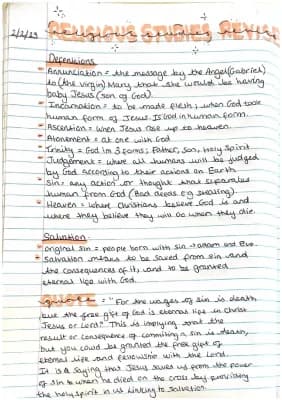 2/2/23
Religious studies
Definitions
Annunciation = the message by the Angel (Gabriel)
to (the virgin) Mary that she would be having
baby Jesus (son of God).
Incarnation = to be made flesh, when God took
human form of Jesus. Is God in human form.
Ascention = when Jesus rose up to heaven.
Atonement = at one with God
Trinity = God in 3 forms; Father, Son, Holy Spirit
Judgement = where all humans will be judged
by God according to their actions on Earth
Sin = any action or thought what separates
human from God (Bad areas eg stealing)
Heaven = where Christians believe God is and
where they believe they will go when they die.
Salvation
original sin = people born with sin → adam and Eve.
Salvation means to be saved from sin and
the consequences of it, and to be granted
eternal life with God.
quote = "For the wages of sin is death
but the free gift of God is eternal life in Christ
Jesus or Lord" This is implying that the
result or consequence of commiting a sin is death,
but you could be granted the free gift of
eternal life and fellowship with the Lord.
It is a saying that Jesus saves us from the power
of sin when he died on the cross by providing
the holy spirit in us linking to salvation.